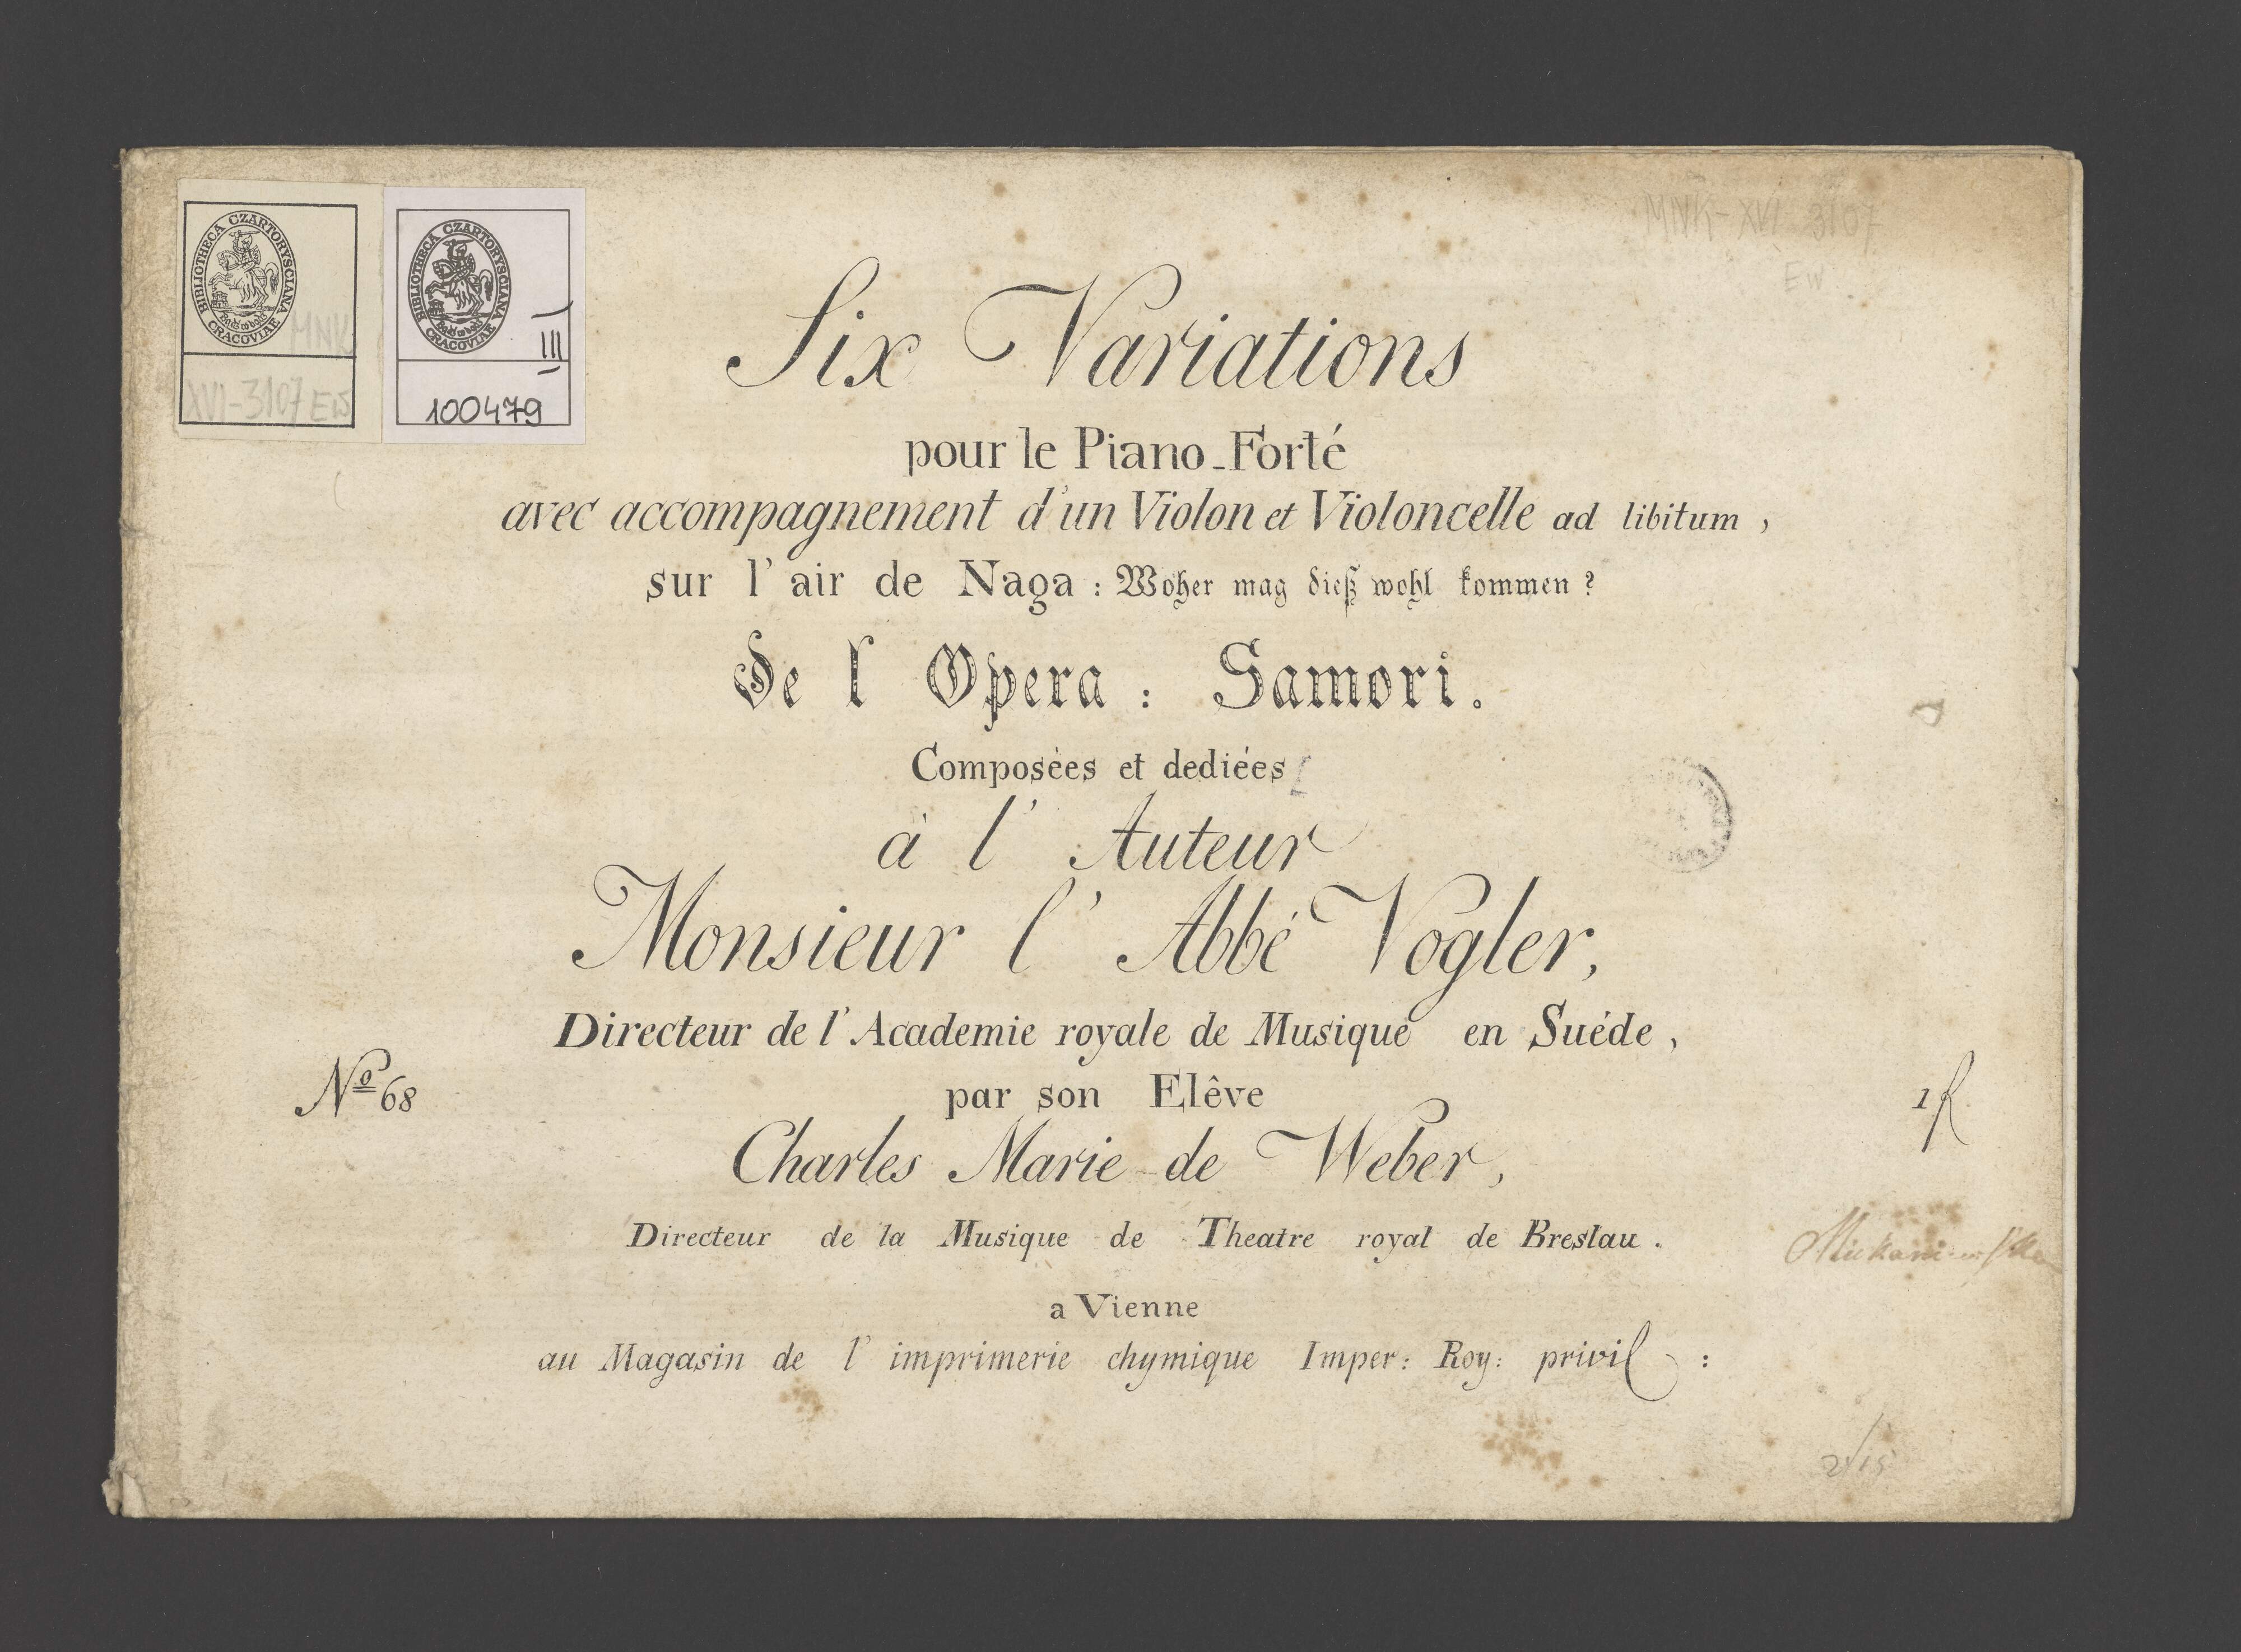 BIBLIOTHECA CZARTORYSCIANA CRACOVIAE
MNK
XVI-3107 EW
BIBLIOTHECA CZARTORYSCIANA CRACOVIAE
III
100479
MNK-XVI-3107
EW
Six Variations
pour le Piano-Forté
avec accompagnement d'un Violon et Violoncelle ad libitum,
sur l'air de Naga: Woher mag dieß wohl kommen?
de l Opera: Samori.
Composèes et dediées
à l'Auteur
Monsieur l'Abbé Vogler,
Directeur de l'Academie royale de Musique en Suéde,
par son Elêve
No 68
1f
Charles Marie de Weber,
Directeur de la Musique de Theatre royal de Breslau.
a Vienne
au Magasin de l'imprimerie chymique Imper: Roy: privil: